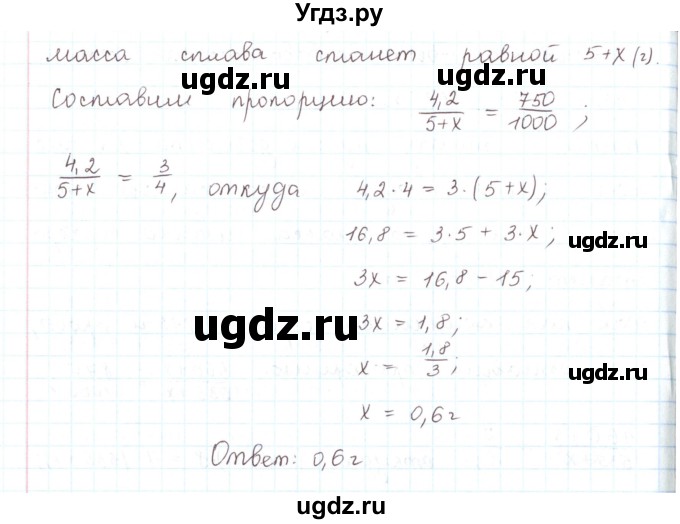 Угдз.ру
масса сплава станет равной 5+x (г).
ugdz.ru ugdz.ru
Составим пропорцию: 4,2/5+x = 750/1000 ;
4,2/5+x = 3/4, откуда 4,2·4 = 3·(5+x);
16,8 = 3·5 + 3·x ;
ugdz.ru
3x = 16,8 - 15;
ugdz.ru
3x = 1,8;
x = 1,8/3;
ugdz.ru
x = 0,6 г
Ответ: 0,6 г
ugdz.ru ugdz.ru
ugdz.ru